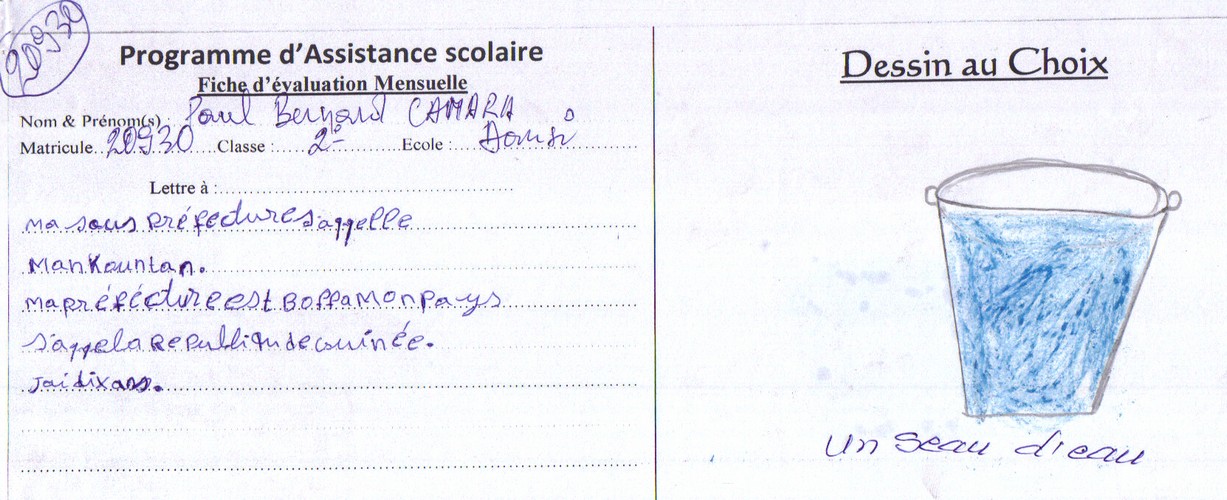 20930
Programme d'Assistance scolaire
Fiche d'évaluation Mensuelle
Nom & Prénom(s) : Paul Bernard CAMARA
Matricule. 20930 Classe : 2e Ecole : Domi
Lettre à :
Ma sous préfecture s'appelle
Mankountan.
Ma préfécture est Boffa Mon pays
s'appela Republiqu de Guinée.
J'ai dix ans.
Dessin au Choix
un seau d'eau